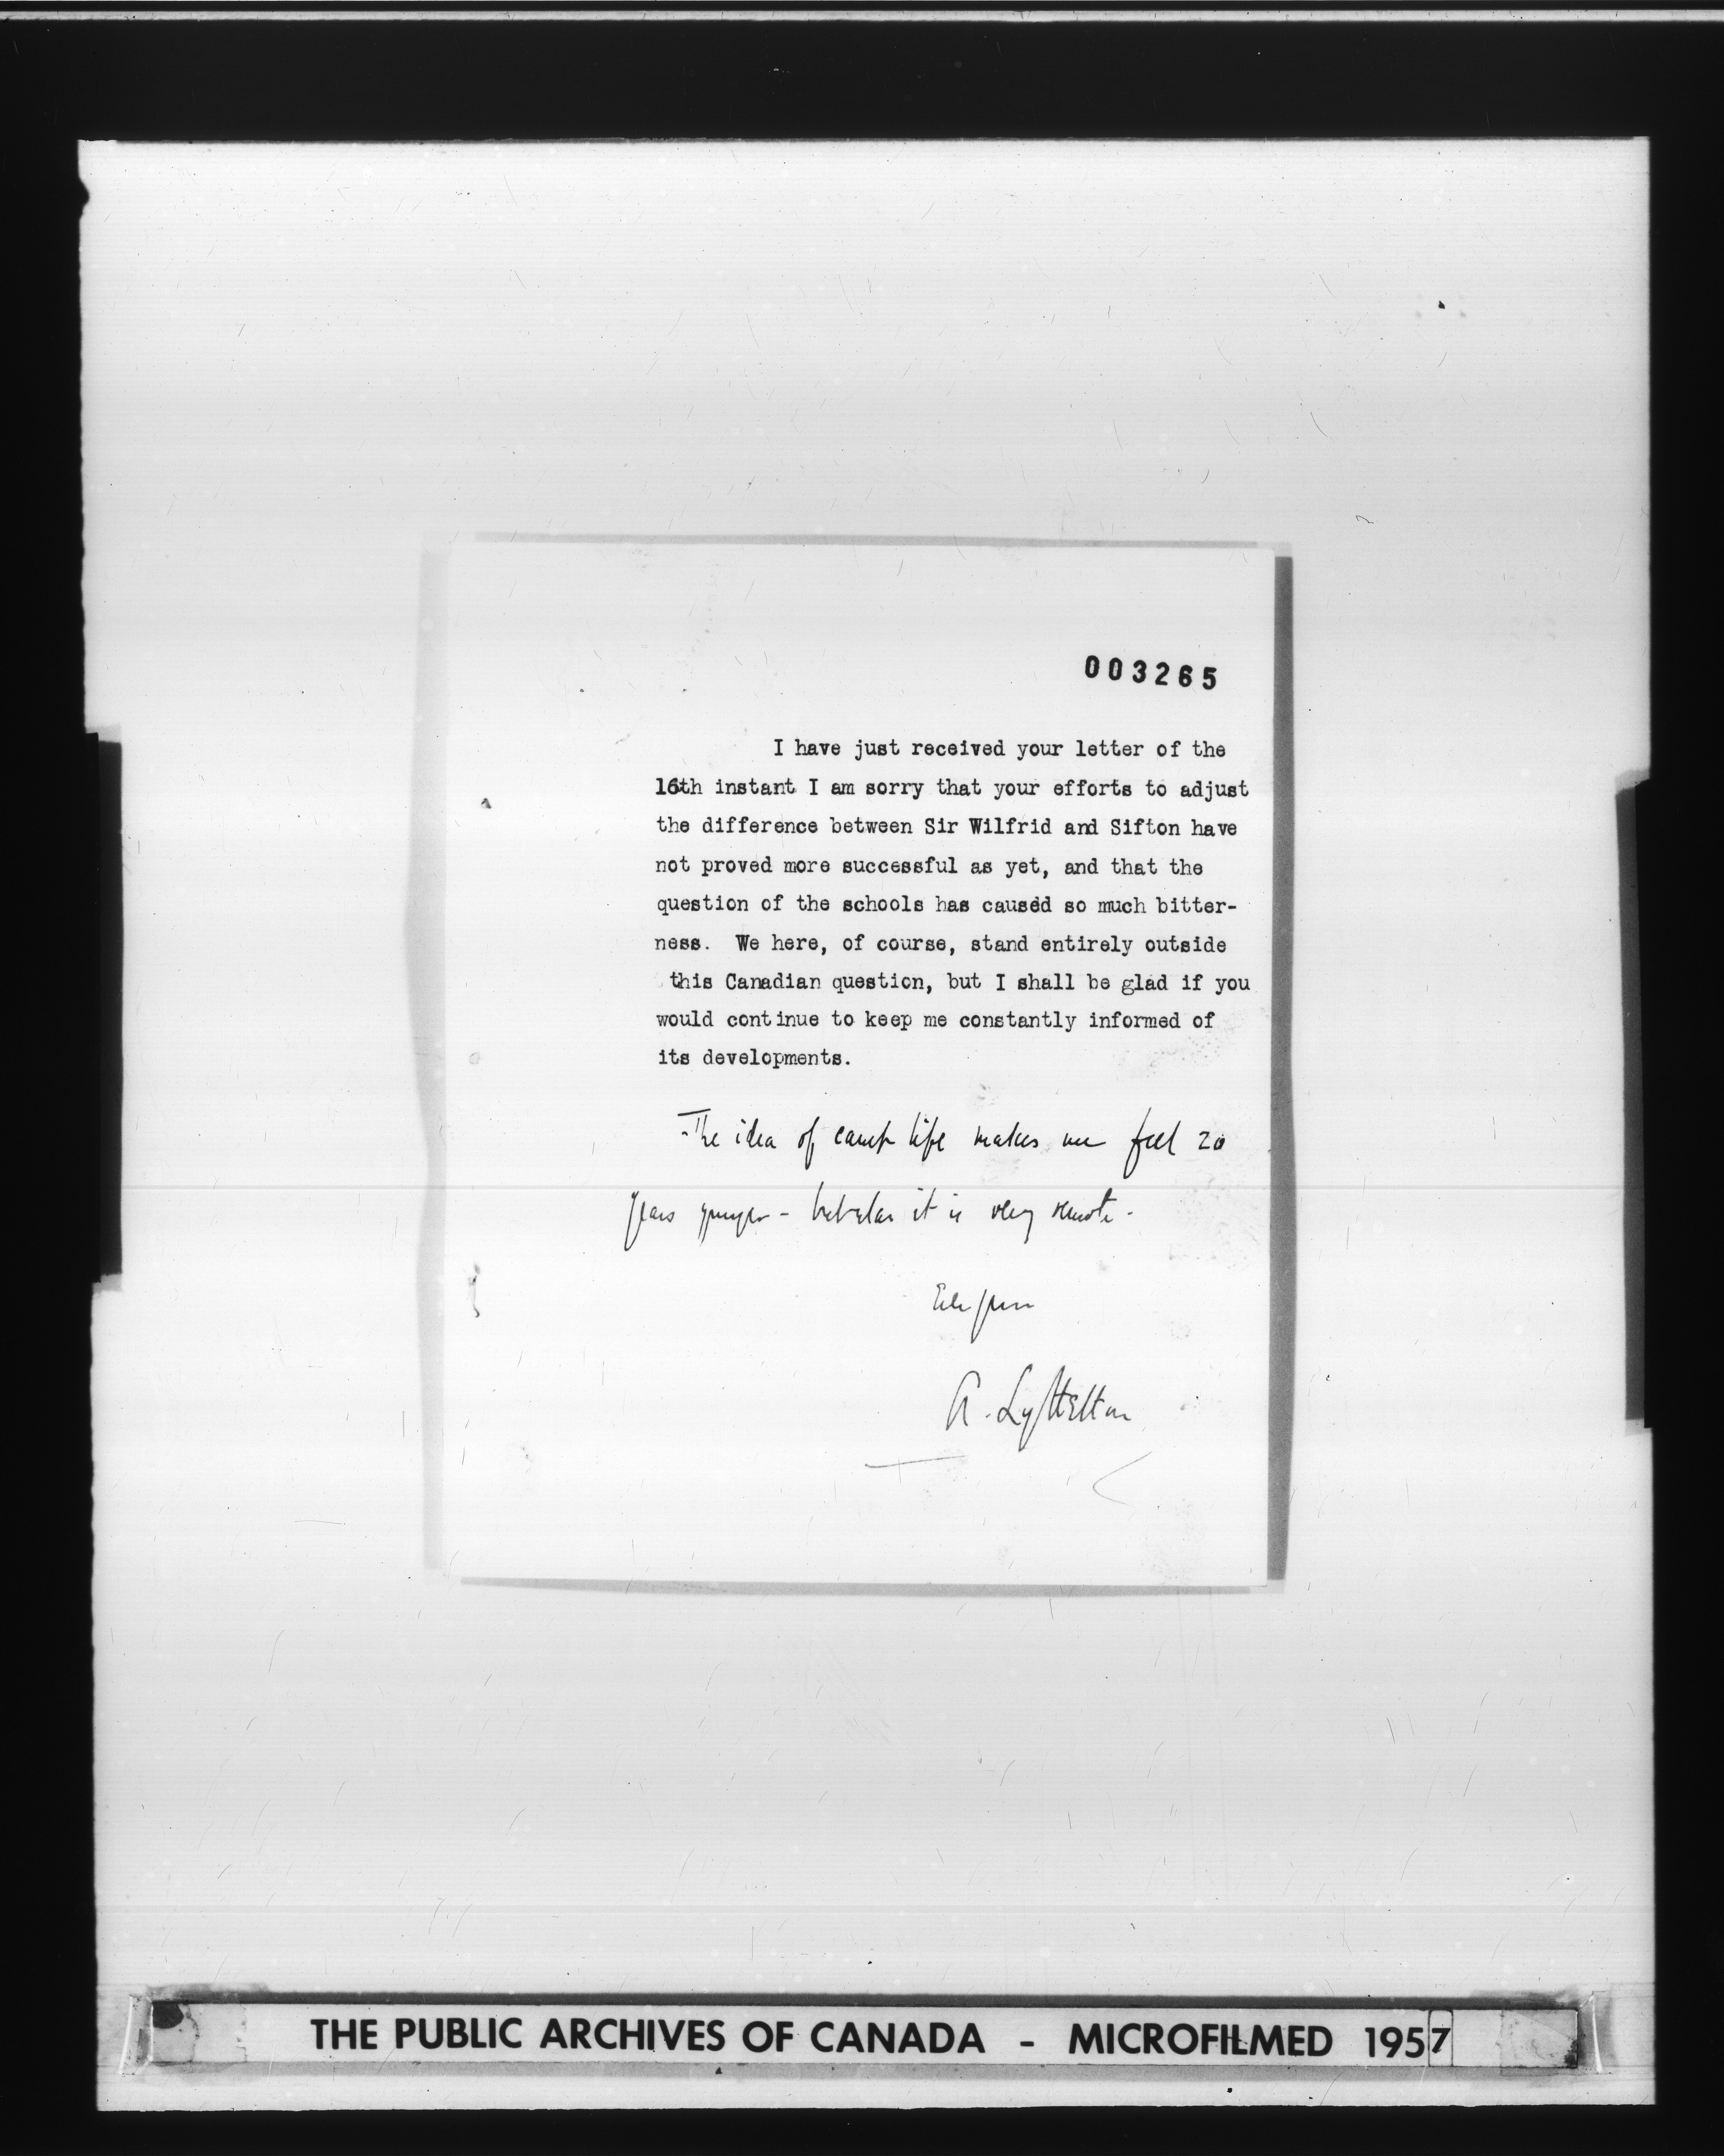 003265
I have just received your letter of the
16th instant I am sorry that your efforts to adjust
the difference between Sir Wilfrid and Sifton have
not proved more successful as yet, and that the
question of the schools has caused so much bitter-
ness. We here, of course, stand entirely outside
this Canadian question, but I shall be glad if you
would continue to keep me constantly informed of
its developments.
The idea of camp life makes me feel 20
years younger - but alas it is very remote -
A. Lyttelton
THE PUBLIC ARCHIVES OF CANADA - MICROFILMED 1957